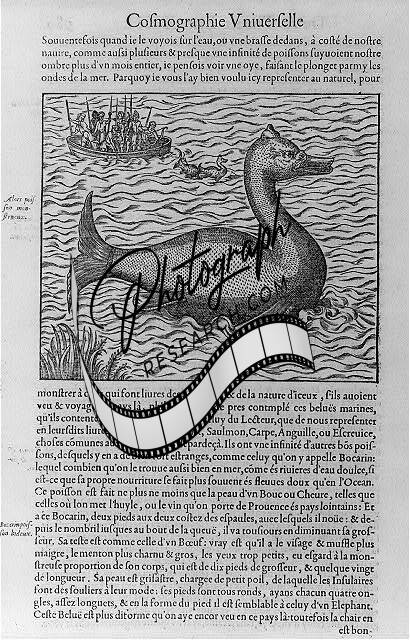 Cosmographie Vniuerselle
Souuentefois quand ie le voyois sur l'eau, ou vne brasse dedans, à costé de nostre
nauire, comme aussi plusieurs & presque vne infinité de poissons suyuoient nostre
ombre plus d'vn mois entier, ie pensois voir vne oye, faisant le plonget parmy les
ondes de la mer. Parquoy ie vous l'ay bien voulu icy representer au naturel, pour
Aloes pois-
son mon-
strueux.
Photograph
RESEARCH.COM
monstrer à qui font liures de & de la nature d'iceux, s'ils auoient
veu & voyagé pres contemplé ces beluës marines,
qu'ils contente luy du Lecteur, que de nous representer
en leursdits liures Saulmon, Carpe, Anguille, ou Escreuice,
choses cōmunes au pardeçà. Ils ont vne infinité d'autres bōs pois-
sons, desquels y en a de estranges, comme celuy qu'on y appelle Bocarin:
lequel combien qu'on le trouue aussi bien en mer, cōme és riuieres d'eau douice, si
est-ce que sa propre nourriture se fait plus souuent és fleuues doux qu'en l'Ocean.
Ce poisson est fait ne plus ne moins que la peau d'vn Bouc ou Cheure, telles que
celles où lon met l'huyle, ou le vin qu'on porte de Prouence és pays lointains: Et
a ce Bocarin, deux pieds aux deux costez des espaules, auec lesquels il noüe: & de-
puis le nombril iusques au bout de la queuë, il va tousiours en diminuant sa gros-
seur. Sa teste est comme celle d'vn Bœuf: vray est qu'il a le visage & muffle plus
maigre, le menton plus charnu & gros, les yeux trop petits, eu esgard à la mon-
strueuse proportion de son corps, qui est de dix pieds de grosseur, & quelque vingt
de longueur. Sa peau est grisastre, chargee de petit poil, de laquelle les Insulaires
font des souliers à leur mode: ses pieds sont tous ronds, ayans chacun quatre on-
gles, assez longuets, & en la forme du pied il est semblable à celuy d'vn Elephant.
Ceste Beluë est plus difforme qu'on aye encor veu en ce pays là: toutesfois la chair en
est bon-
Bocarin pois-
son hideux.